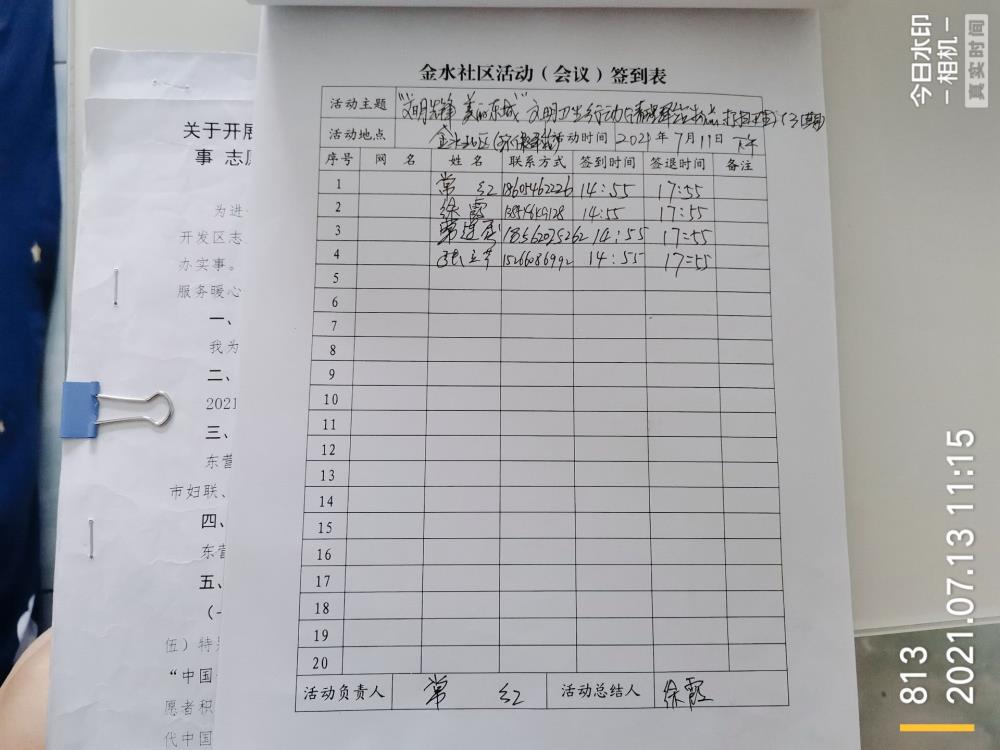 金水社区活动（会议）签到表
活动主题 "文明先锋 美丽东城" 文明卫生行动
活动地点 金水社区 活动时间 2021年7月11日 下午
序号 网 名 姓 名 联系方式 签到时间 签退时间 备注
1 常 红 18605462226 14:55 17:55
2 徐霞 14:55 17:55
3 18562035262 14:55 17:55
4 15266086992 14:55 17:55
5
6
7
8
9
10
11
12
13
14
15
16
17
18
19
20
活动负责人 常 红 活动总结人 徐霞
关于开展
事 志愿
为进
开发区志
办实事。
服务暖心
一、
我为
二、
2021
三、
东营
市妇联、
四、
东营
五、
（一
伍）特
“中国
愿者积
代中国
今日水印
相机
真实时间
813
2021.07.13 11:15